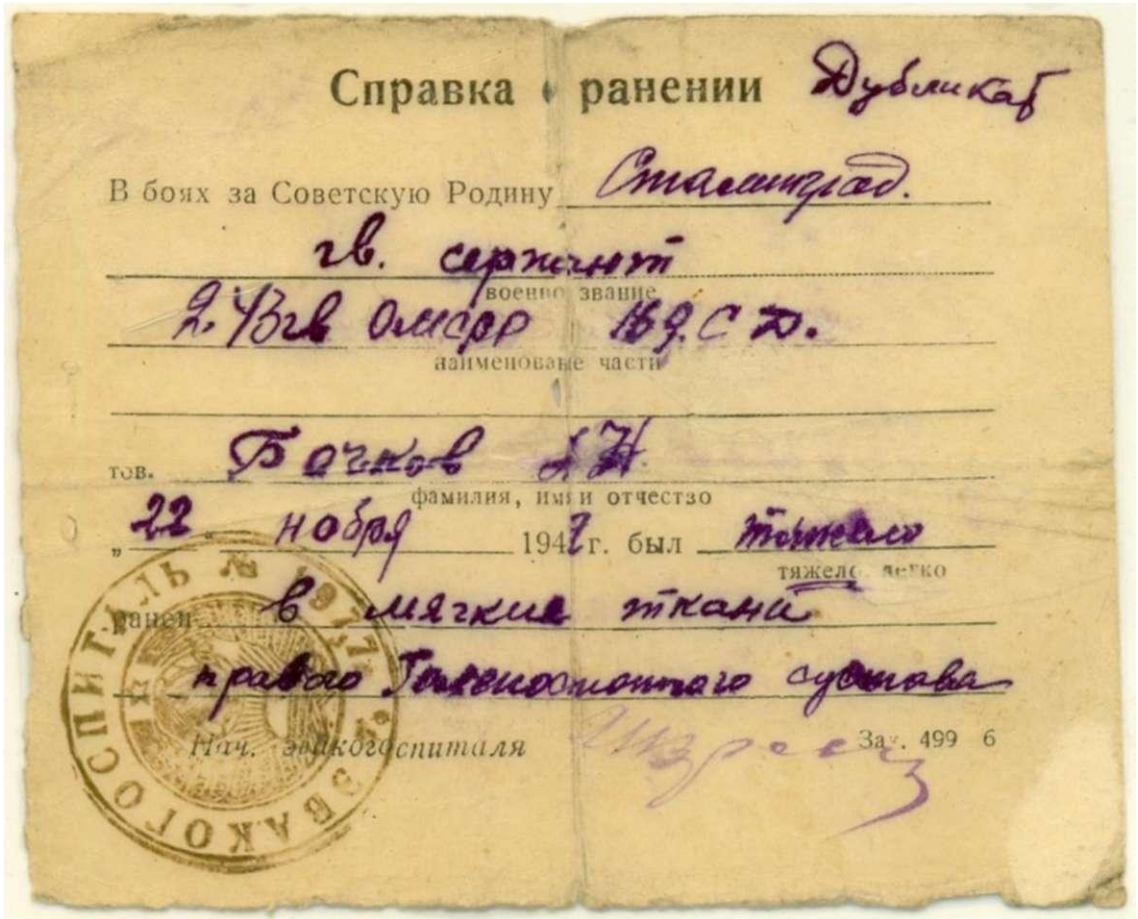 Справка о ранении Дубликат
В боях за Советскую Родину Сталинград.
гв. сержант
военно звание
2. 43 гв 169. С Д.
наименование части
тов. Бачков А Н.
фамилия, имя и отчество
„ 22 “ ноября 194 г. был тяжело
тяжело, легко
ранен в мягкие ткани
правого Голеностопного сустава
Нач. эвакогоспиталя Зак. 499 6
ЭВАКОГОСПИТАЛЬ №